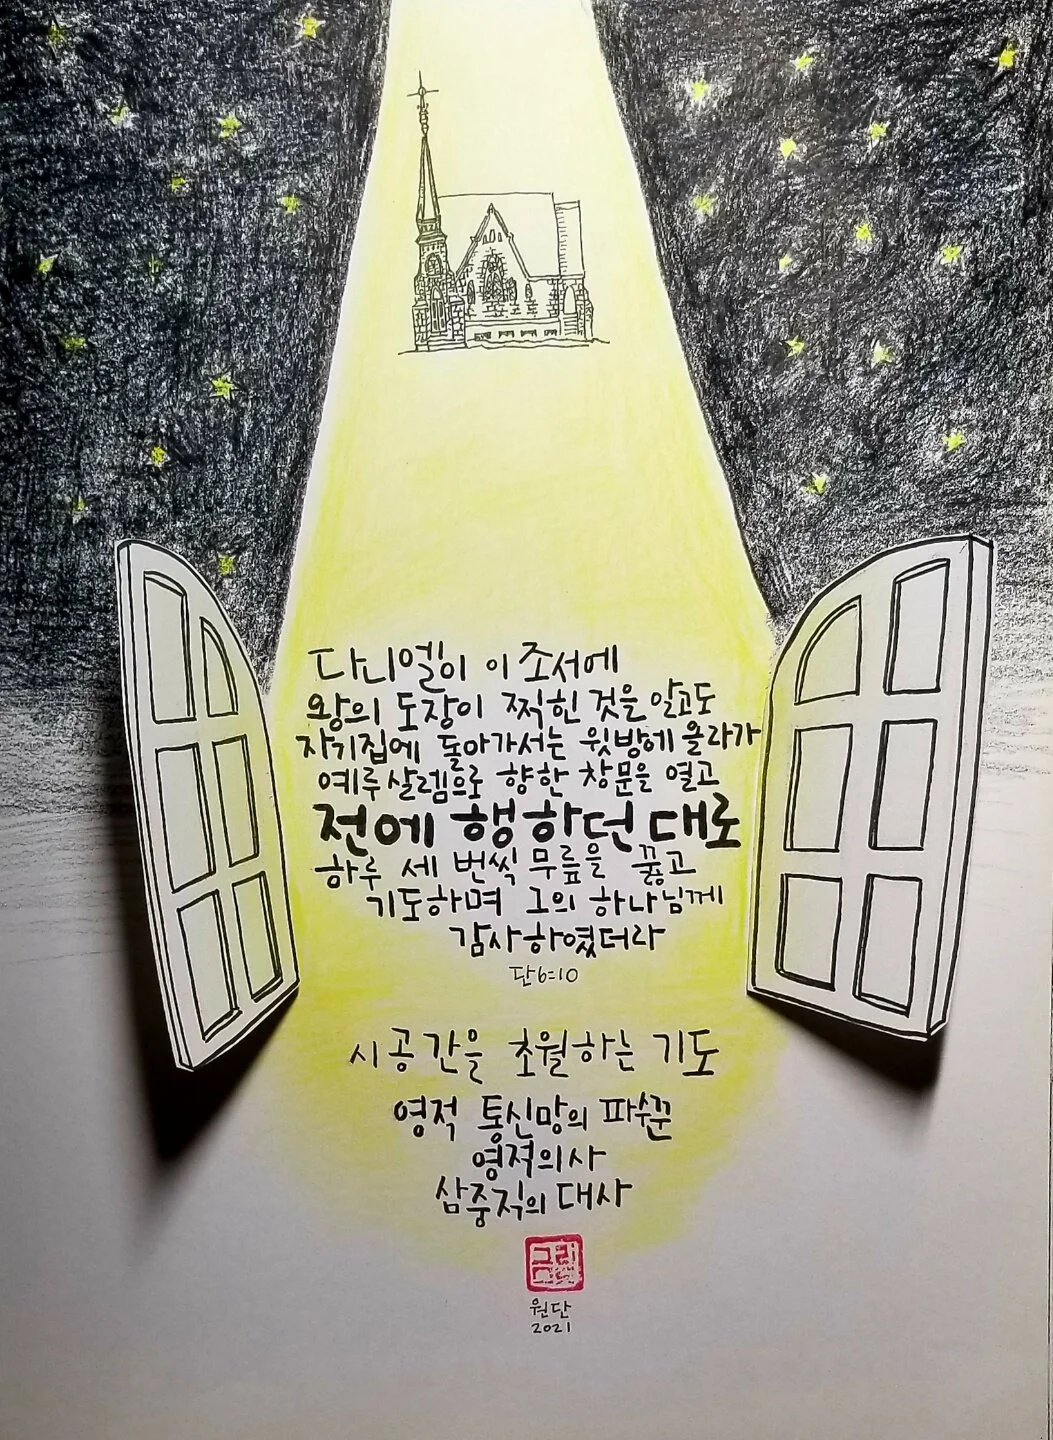 다니엘이 이 조서에
왕의 도장이 찍힌 것을 알고도
자기집에 돌아가서는 윗방에 올라가
예루살렘으로 향한 창문을 열고
전에 행하던 대로
하루 세 번씩 무릎을 꿇고
기도하며 그의 하나님께
감사하였더라
단6:10
시공간을 초월하는 기도
영적 통신망의 파수꾼
영적의사
삼중직의 대사
원단
2021